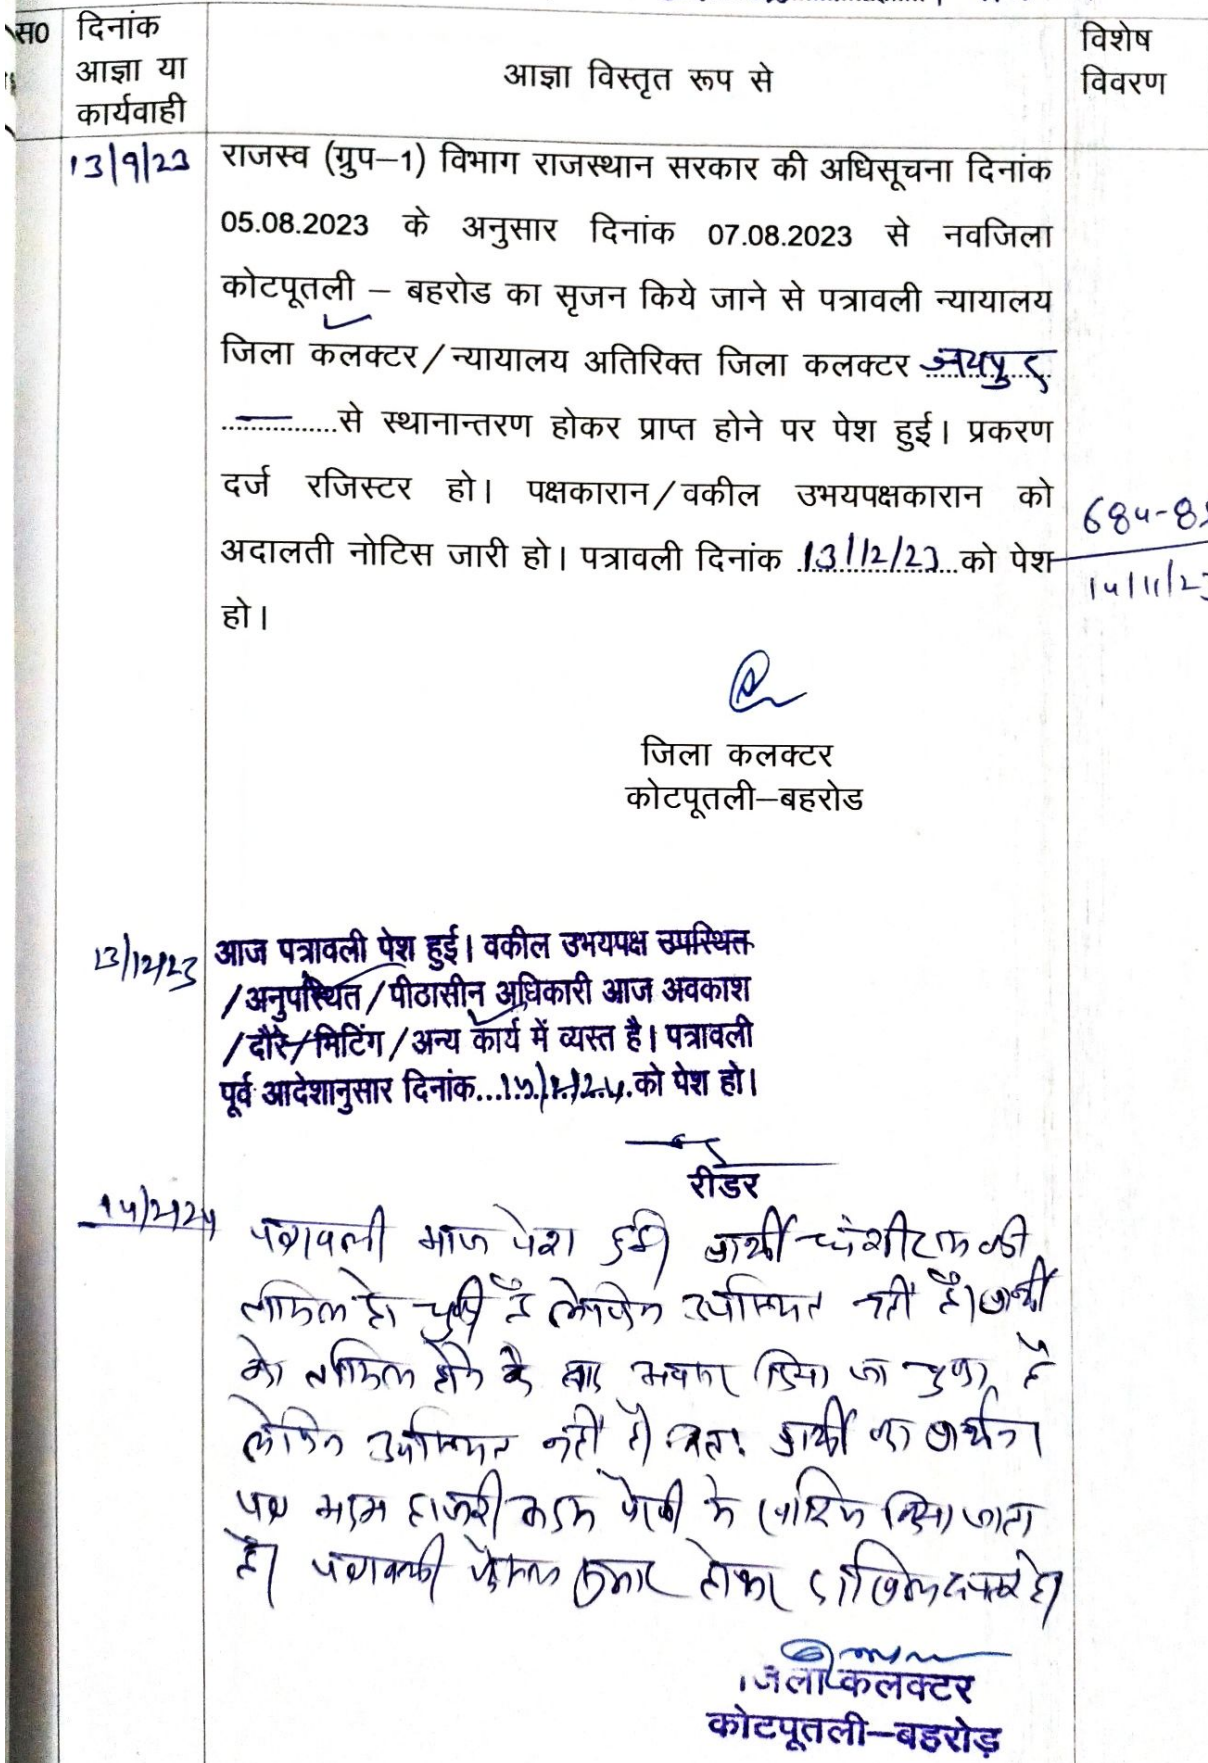 स0 दिनांक आज्ञा या कार्यवाही आज्ञा विस्तृत रूप से विशेष विवरण
13/9/23 राजस्व (ग्रुप–1) विभाग राजस्थान सरकार की अधिसूचना दिनांक
05.08.2023 के अनुसार दिनांक 07.08.2023 से नवजिला
कोटपूतली – बहरोड का सृजन किये जाने से पत्रावली न्यायालय
जिला कलक्टर/न्यायालय अतिरिक्त जिला कलक्टर जयपुर
................से स्थानान्तरण होकर प्राप्त होने पर पेश हुई। प्रकरण
दर्ज रजिस्टर हो। पक्षकारान/वकील उभयपक्षकारान को
अदालती नोटिस जारी हो। पत्रावली दिनांक 13/12/23 को पेश
हो।
जिला कलक्टर
कोटपूतली–बहरोड
13/12/23 आज पत्रावली पेश हुई। वकील उभयपक्ष उपस्थित
/अनुपस्थित/पीठासीन अधिकारी आज अवकाश
/दौरे/मिटिंग/अन्य कार्य में व्यस्त है। पत्रावली
पूर्व आदेशानुसार दिनांक को पेश हो।
रीडर
पत्रावली आज पेश हुई। प्रार्थी की
तामिल हो चुकी है लेकिन उपस्थित नहीं है। प्रार्थी
को तामिल होने के बाद अवसर दिया जा चुका है
लेकिन उपस्थित नहीं है। अतः प्रार्थी का प्रार्थना
पत्र अदम हाजरी अदम पैरवी में खारिज किया जाता
है। पत्रावली फैसल शुमार होकर दाखिल दफ्तर हो।
जिला कलक्टर
कोटपूतली–बहरोड़